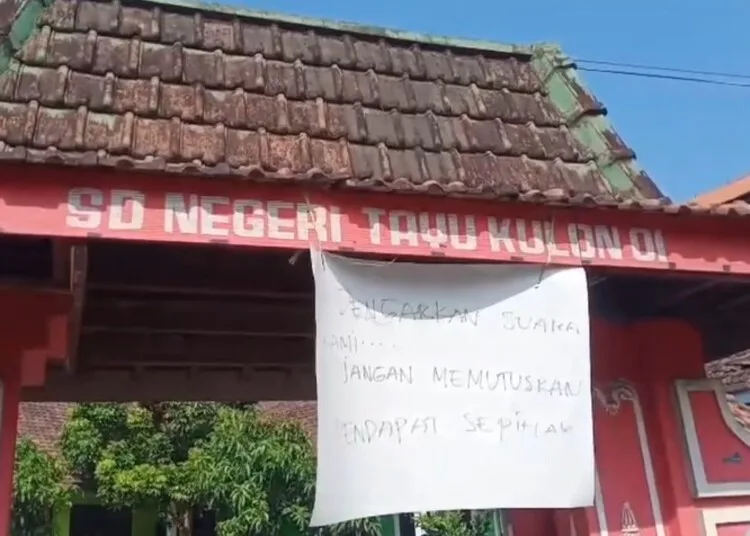 SD NEGERI TAYU KULON 01
DENGARKAN SUARA
KAMI.....
JANGAN MEMUTUSKAN
PENDAPAT SEPIHAK